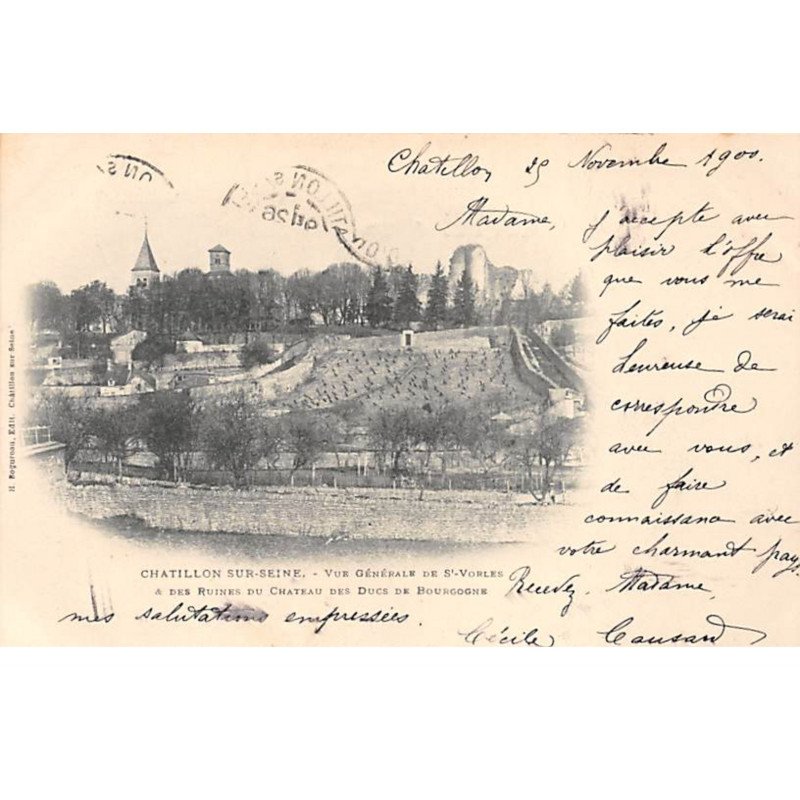 Chatillon 25 Novembre 1900.
Madame,
J'accepte avec
plaisir l'offre
que vous me
faites, je serai
heureuse de
correspondre
avec vous, et
de faire
connaissance avec
votre charmant pays
Recevez, Madame,
mes salutations empressées.
Cécile
CHATILLON SUR-SEINE. - VUE GÉNÉRALE DE St-VORLES
& DES RUINES DU CHATEAU DES DUCS DE BOURGOGNE
H. Rogureau, Edit. Châtillon sur Seine